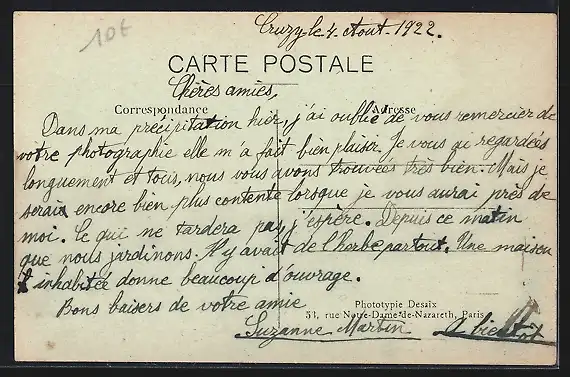 10f
Cruzy-le 4. Aout. 1922.
CARTE POSTALE
Chères amies,
Correspondance
Adresse
Dans ma précipitation hier, j'ai oublié de vous remercier de
votre photographie elle m'a fait bien plaisir. Je vous ai regardées
longuement et tous, nous vous avons trouvées très bien. Mais je
serais encore bien plus contente lorsque je vous aurai près de
moi. Ce qui ne tardera pas j'espère. Depuis ce matin
que nous jardinons. Il y avait de l'herbe partout. Une maison
inhabitée donne beaucoup d'ouvrage.
Bons baisers de votre amie
Phototypie Desaix
53, rue Notre-Dame-de-Nazareth, Paris
Suzanne Martin A bientôt